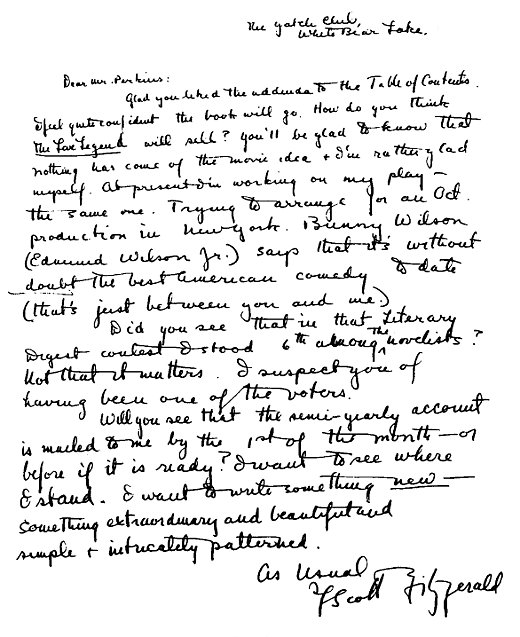 The Yatch Club,
White Bear Lake.
Dear Mr. Perkins:
Glad you liked the addenda to the Table of Contents.
I feel quite confident the book will go. How do you think
The Love Legend will sell? You'll be glad to know that
nothing has come of the movie idea + I'm rather glad
myself. At present I'm working on my play –
the same one. Trying to arrange for an Oct.
production in New York. Bunny Wilson
(Edmund Wilson Jr.) says that it's without
doubt the best American comedy to date
(that's just between you and me.)
Did you see that in that Literary
Digest contest I stood 6th among the novelists?
Not that it matters. I suspect you of
having been one of the voters.
Will you see that the semi-yearly account
is mailed to me by the 1st of the month – or
before if it is ready? I want to see where
I stand. I want to write something new –
something extraordinary and beautiful and
simple + intricately patterned.
As Usual
F Scott Fitzgerald